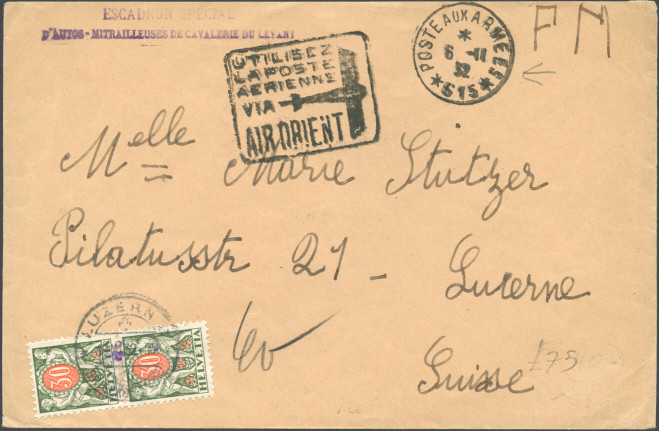 ESCADRON SPÉCIAL
D'AUTOS-MITRAILLEUSES DE CAVALERIE DU LEVANT
UTILISEZ
LA POSTE
AERIENNE
VIA
AIR ORIENT
POSTE AUX ARMÉES
*
6 -11
32
*615*
PM
Melle Marie Stutzer
Pilatusstr 21 - Lucerne
Suisse
£75
LUZERN
30
HELVETIA
30
HELVETIA